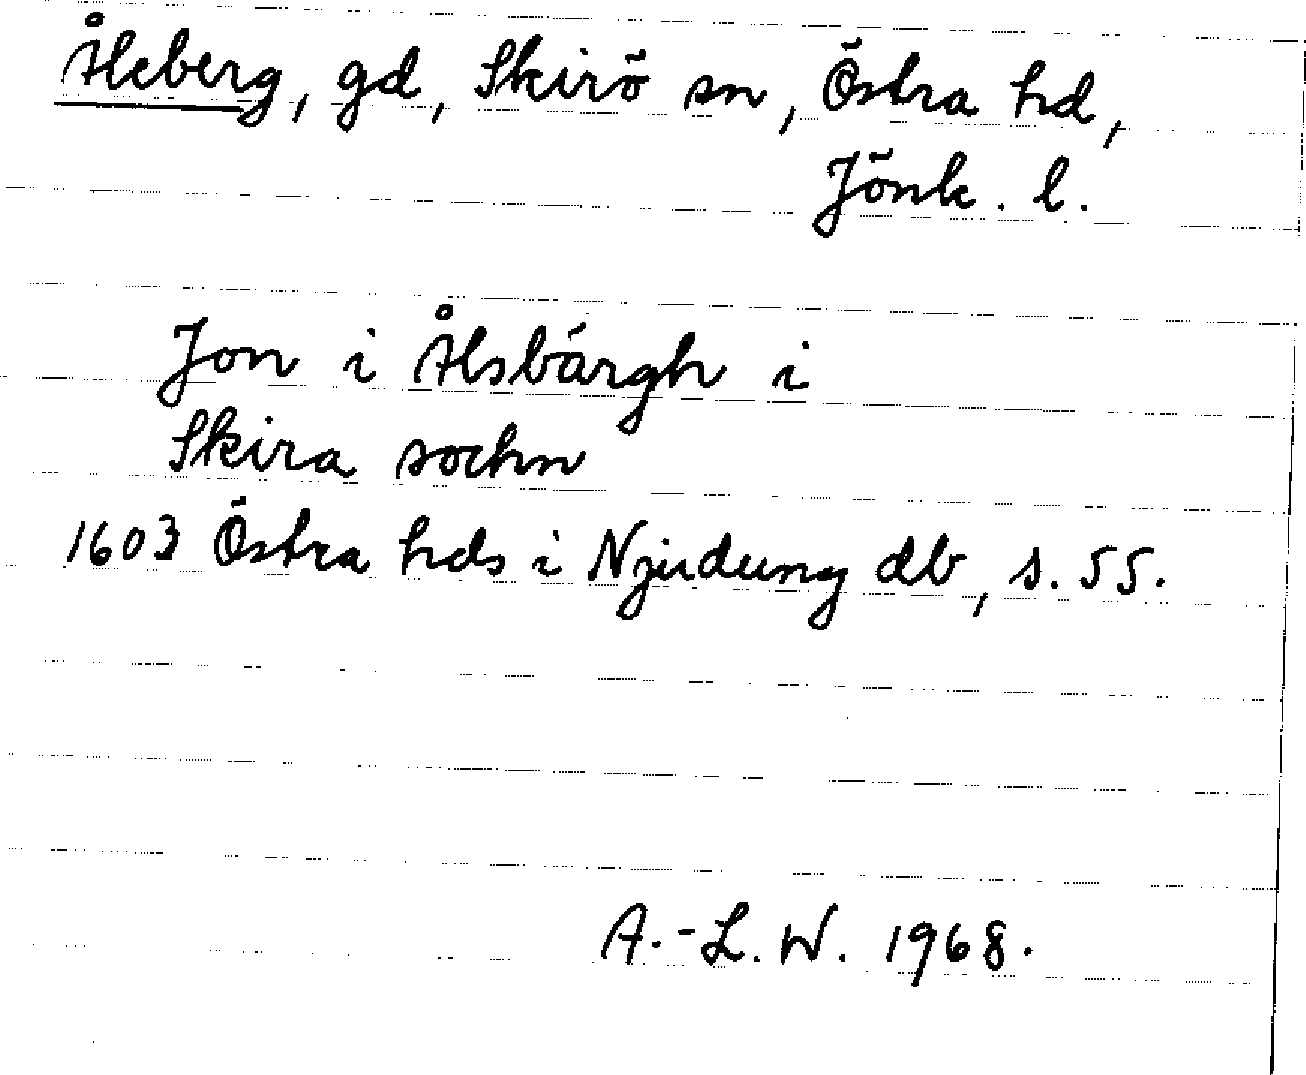 Åleberg, gd, Skirö sn, Östra hd,
Jönk. l.
Jon i Ålsbárgh i
Skira sochn
1603 Östra hds i Njudung db, s. 55.
A.-L. W. 1968.